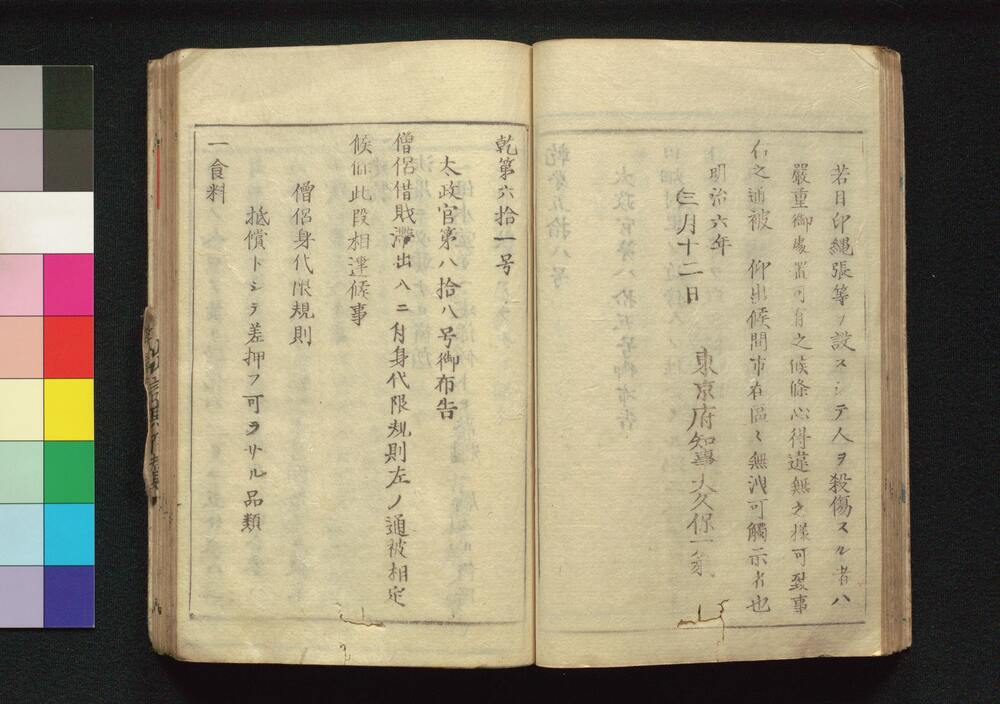 若目印縄張等ノ設ヌシテ人ヲ殺傷スル者ハ
嚴重御處置可有之候條心得違無之様可致事
右之通被　仰出候間市在區々無洩可觸示者也
明治六年
三月十二日
東京府知事大久保一翁
乾第六拾一号
太政官第八拾八号御布告
僧侶借財滞出ハ二付身代限規則左ノ通被相定
候條此段相達候事
僧侶身代限規則
抵償トシテ差押フ可ラサル品類
一食料